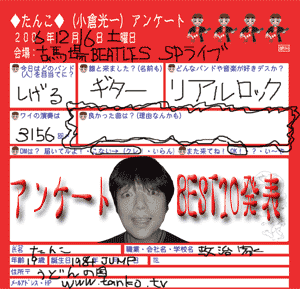 ◆たんこ◆ (小倉光一) アンケート
2006年12月16日 土曜日
会場: 古馬場BEATLES SPライブ
今日はどのバンド(人)を目当てに? 誰と来ました?(名前も) どんなバンドや音楽が好きデスか?
しげる ギター リアルロック
ワイの演奏は 良かった曲は?(理由なんかも)
3156
DMは? 届いてるよ!・こない→(クレ)・いらん また来てね!
アンケート BEST10発表
氏名 たんこ 職業・会社名・学校名 政治家
年令 19歳 誕生日 1984 JUMP
住所〒 うどんの国
メールアドレス・HP www.tanko.tv